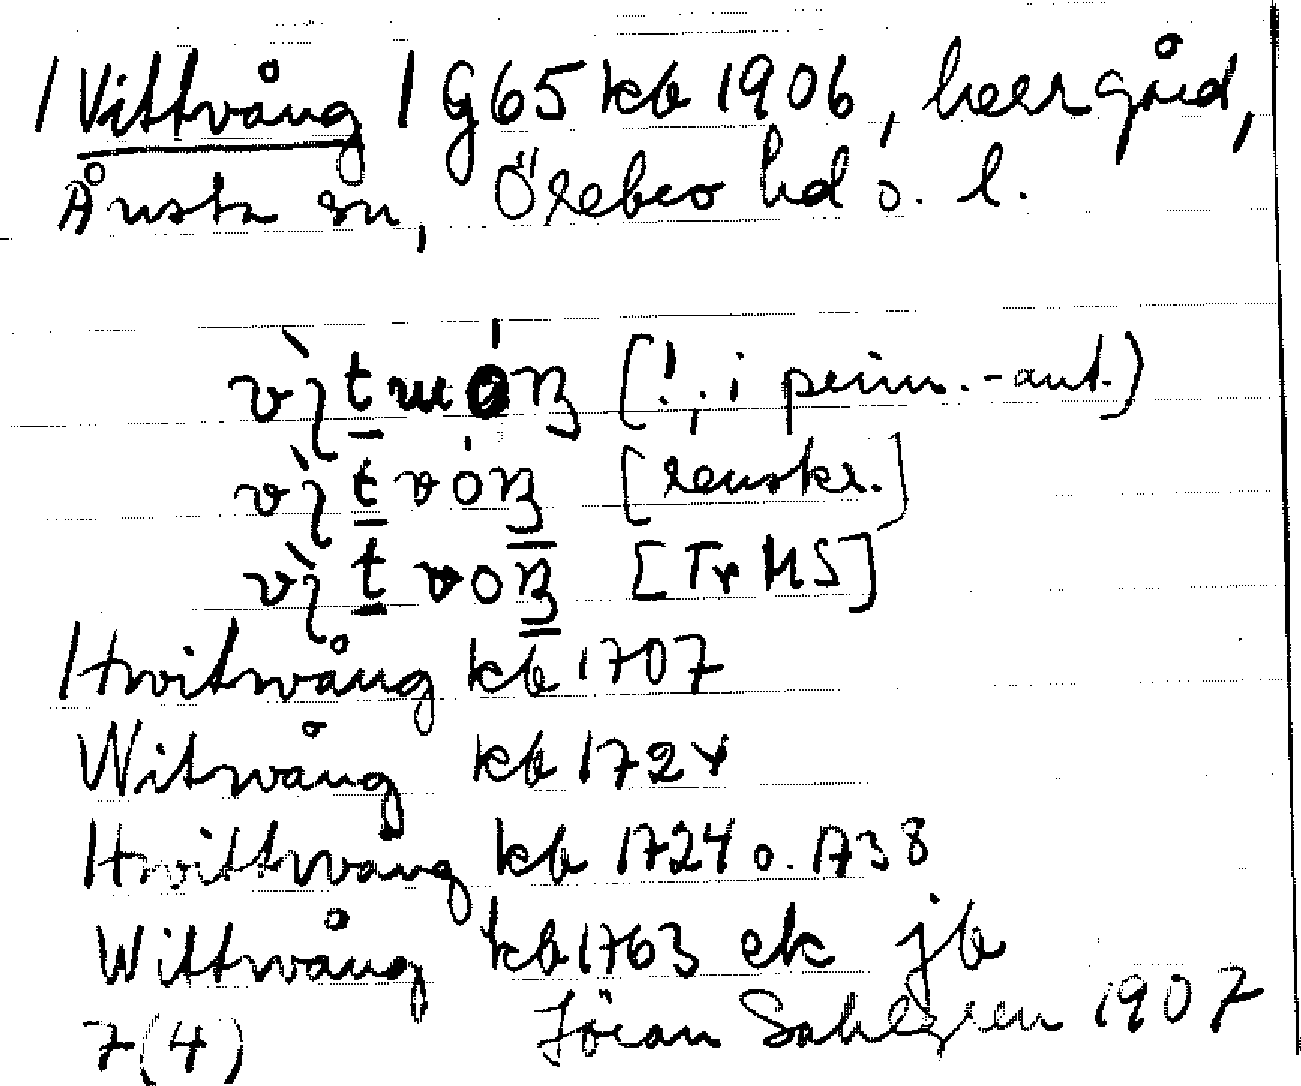 /Vittvång / G65 kb 1906, herrgård,
Ånsta sn, Örebro hd o. l.
[!, i prim.-ant.]
[renskr.]
[Tr MS]
Hwitwång kb 1707
Witwång kb 1724
Hwittwång kb 1724 o. 1738
Wittwång kb 1763 ek jb
7(4) Jöran Sahlgren 1907